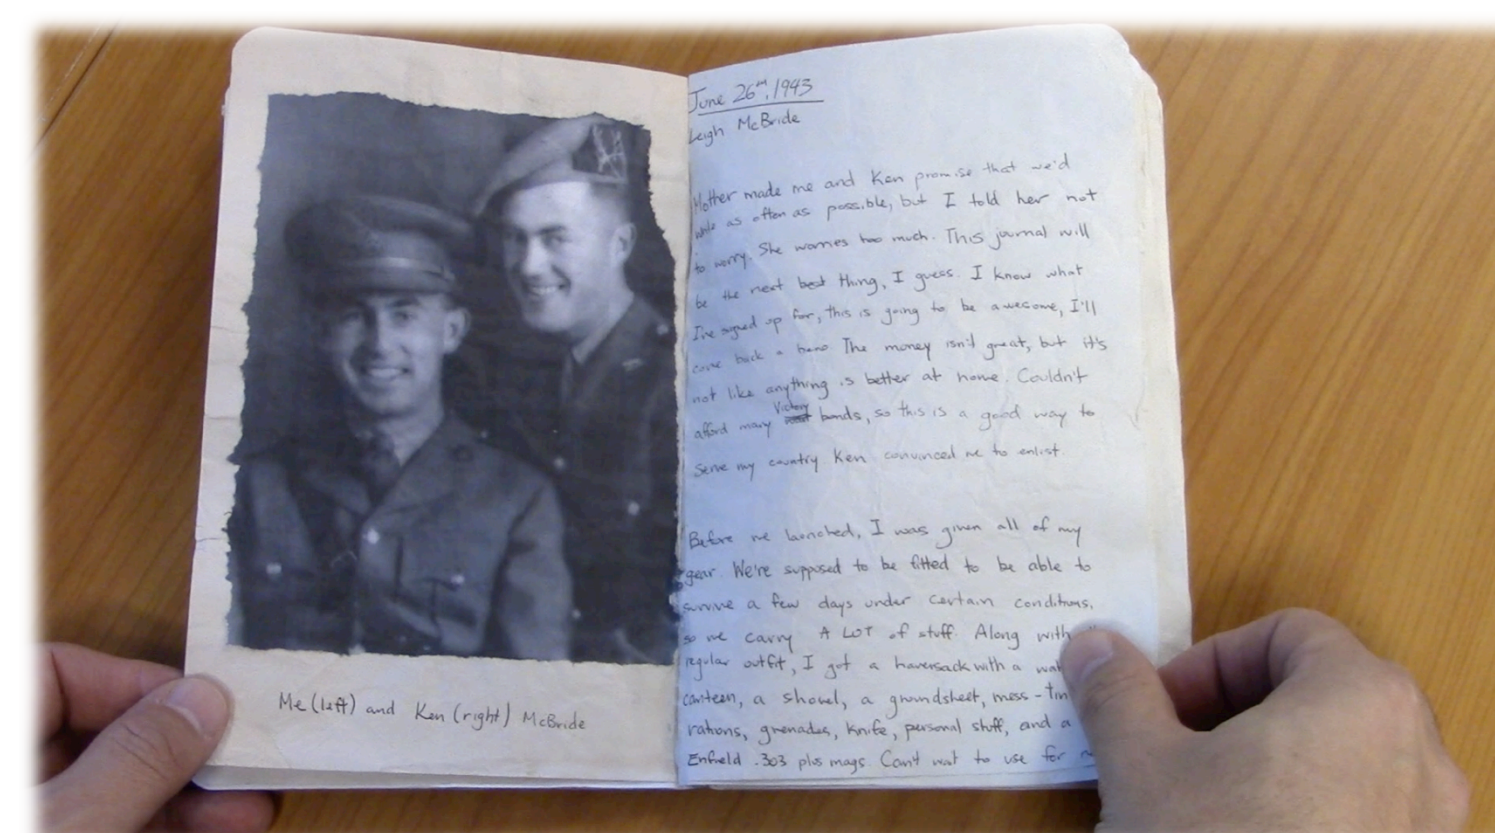 Me (left) and Ken (right) McBride
June 26th, 1943
Leigh McBride
Mother made me and Ken promise that we'd
write as often as possible, but I told her not
to worry. She worries too much. This journal will
be the next best thing, I guess. I know what
I've signed up for, this is going to be awesome, I'll
come back a hero. The money isn't great, but it's
not like anything is better at home. Couldn't
afford many Victory bonds, so this is a good way to
serve my country. Ken convinced me to enlist.
Before we launched, I was given all of my
gear. We're supposed to be fitted to be able to
survive a few days under certain conditions,
so we carry A LOT of stuff. Along with
regular outfit, I got a haversack with a
canteen, a shovel, a groundsheet, mess-tin
rations, grenades, knife, personal stuff, and a
Enfield .303 plus mags. Can't wait to use for